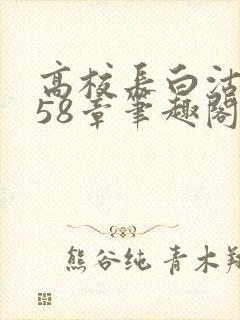 高校长白洁
58章笔趣阁
熊谷纯 青木翔